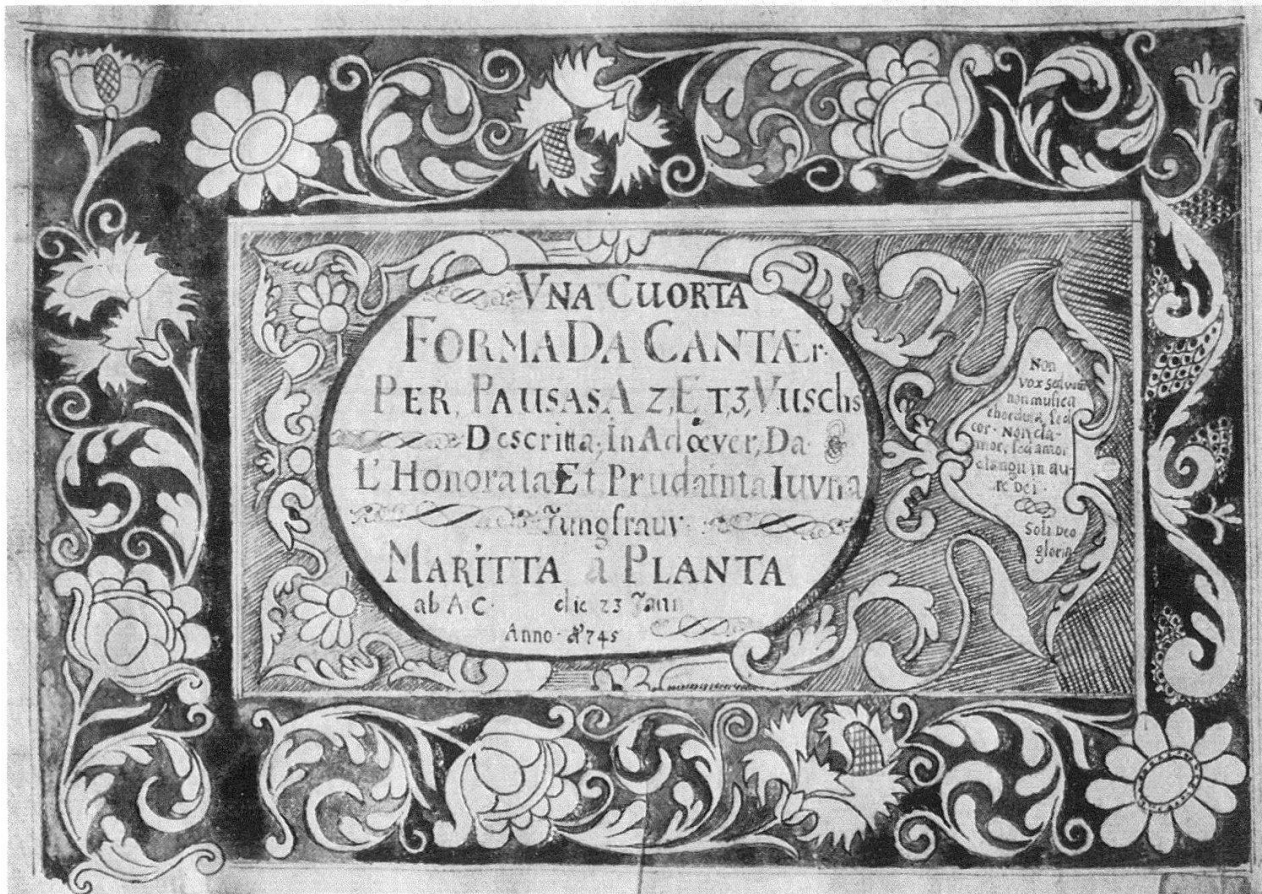 VNA CUORTA
FORMA DA CANTÆr.
PER, PAUSAS A 2, ET 3, VUSCHS
Descritta, In Adœver, Da
L'Honorata Et Prudainta Iuvna
Jungfrauv
MARITTA à PLANTA
ab A C. die 23 Jann
Anno 1745
Non
vox sed votum
non musica
chordula, sed
cor. Non cla-
mor, sed amor
clangit in au-
re Dei.
Soli Deo
gloria